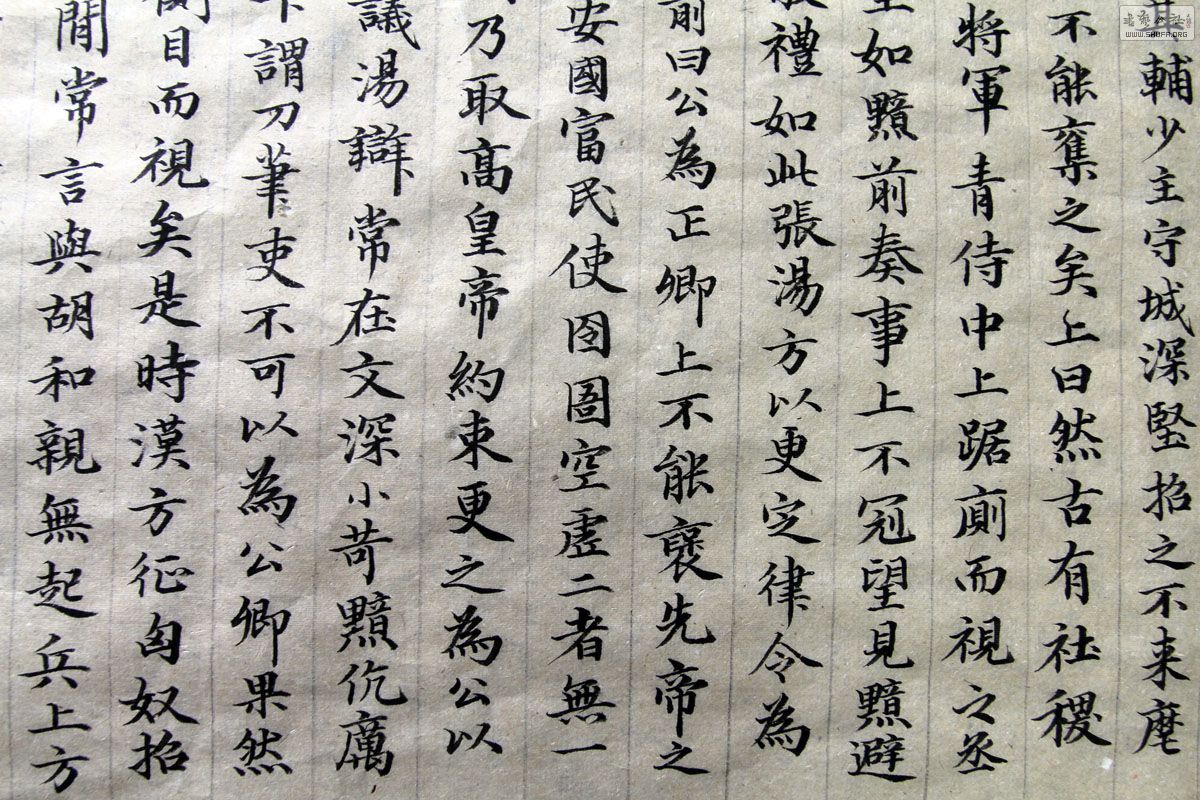 輔少主守城深堅招之不来麾
不能奪之矣上曰然古有社稷
將軍青侍中上踞廁而視之丞
至如黯前奏事上不冠望見黯避
禮如此張湯方以更定律令為
前曰公為正卿上不能褒先帝之
安國富民使囹圄空虛二者無一
乃取高皇帝約束更之為公以
議湯辯常在文深小苛黯伉厲
謂刀筆吏不可以為公卿果然
目而視矣是時漢方征匈奴招
閒常言與胡和親無起兵上方
WWW.SHUFA.ORG